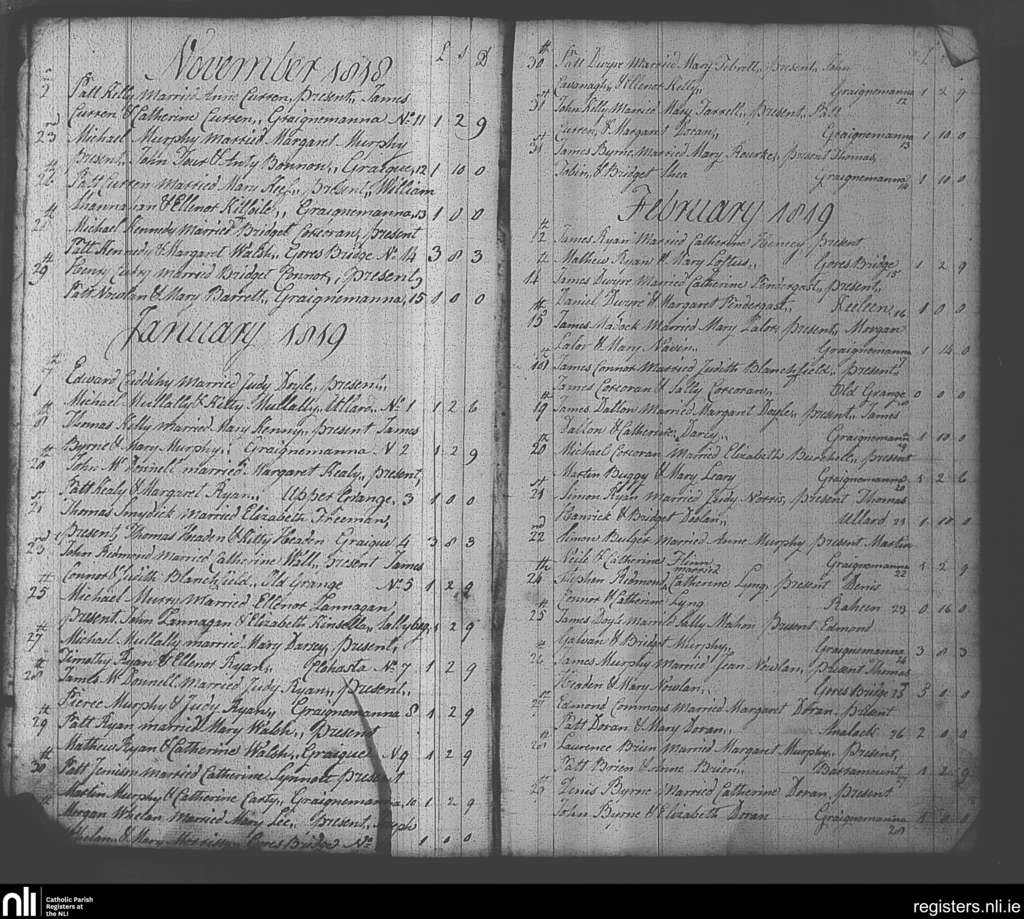 November 1818
£ s D
2 Patt Kelly Married Anne Curren, Present, James
Curren & Catherine Curren,, Graignemanna No 11 1 2 9
23rd Michael Murphy Married Margaret Murphy
Present, John & Anty Bonnon,, Graigue, 12 1 10 0
26th Patt Curren Married Mary Present, William
& Ellenor Graignemanna, 13 1 0 0
28th Michael Kennedy Married Bridget Corcoran, Present
Patt Kennedy & Margaret Walsh,, Gores Bridge No 14 3 8 3
29th Henry Married Bridget Connor,, Present,
Patt Nowlan & Mary Barrett,, Graignemanna, 15 0 0
January 1819
7th Edward Cuddihy Married Judy Doyle,, Present,,
Michael Mullally & Kitty Mullally, Ullard,, No 1 1 2 6
8th Thomas Kelly Married Mary Kenny,, Present James
Byrne & Mary Murphy,, Graignemanna N 2 1 2 9
20th John McDonnell married Margaret Healy,, Present,
Patt Healy & Margaret Ryan,, Upper Grange, 3 1 0 0
21st Thomas Smydick Married Elizabeth Freeman,
Present, Thomas Headen & Kitty Headen Graigue 4 3 8 3
23rd John Redmond Married Catherine Wall,, Present James
Connor & Judith Blanchfield,, Old Grange No 5 1 2 9
25th Michael Murry Married Ellenor Lannagan
Present, John Lannagan & Elizabeth Kinsella,, 1 2 9
27th Michael Mullally married Mary Darcy, Present,
Timothy Ryan & Ellenor Ryan,, No 7 1 2 9
28th James McDonnell Married Judy Ryan,, Present,,
Pierce Murphy & Judy Ryan,, Graignemanna 8 1 2 9
29th Patt Ryan married Mary Walsh,, Present
Mathew Ryan & Catherine Walsh,, Graigue, N 9 1 2 9
30th Patt Married Catherine Synnott Present
Martin Murphy & Catherine Carty,, Graignemanna, 10 1 2 9
Morgan Whelan Married Mary Lee,, Present, Joseph
Whelan & Mary Gores Bridge No 1 0 0
£
30th Patt Dwyre Married Mary Present, John
Cavanagh, & Ellenor Kelly,, Graignemanna 12 1 2 9
31st John Kelly Married Mary Farrell,, Present, Patt
Curren, & Margaret Doran,, Graignemanna 13 1 10 0
31st James Byrne, Married Mary Rourke,, Present Thomas
Tobin, & Bridget Shea Graignemanna 14 1 10 0
February 1819
12th James Ryan Married Catherine Present
Mathew Ryan & Mary Loftus,, Gores Bridge 15 1 2 9
14th James Dwyre Married Catherine Pendergast,, Present,
Daniel Dwyre & Margaret Pindergast,, 16 1 0 0
15th James Married Mary Lalor, Present, Morgan
Lalor & Mary Navin,, Graignemanna 1 14 0
18th James Connor Married Judith Blanchfield,, Present
James Corcoran & Sally Corcoran,, Old Grange 0 0 0
19th James Dalton Married Margaret Doyle,, Present, James
Dalton & Catherine Darcy,, Graignemanna 1 10 0
20th Michael Corcoran Married Elizabeth Present
Martin Buggy & Mary Leary Graignemanna 20 1 2 6
21st Simon Ryan Married Judy Norris, Present Thomas
& Bridget Ullard 21 1 10 0
22nd Simon Bulger Married Anne Murphy Present Martin
Neile & Catherine Flinn Graignemanna 22 1 2 9
24th Stephen Redmond, married Catherine Lyng, Present Denis
Connor & Catherine Lyng Raheen 23 0 16 0
25th James Doyle Married Sally Mahon Present Edmond
Galvan & Bridget Murphy, Graignemanna 24 3 8 3
26th James Murphy Married Jean Nowlan, Present Thomas
Headen & Mary Nowlan,, Gores Bridge 25 3 0 0
27th Edmond Commons Married Margaret Doran, Present
Patt Doran & Mary Doran,, 26 2 0 0
28th Laurence Brien Married Margaret Murphy,, Present,
Patt Brien & Anne Brien,, Barramount 27 1 2 9
Denis Byrne Married Catherine Doran, Present
John Byrne & Elizabeth Doran Graignemanna 28 1 0 0
nli Catholic Parish
Registers at
the NLI
registers.nli.ie